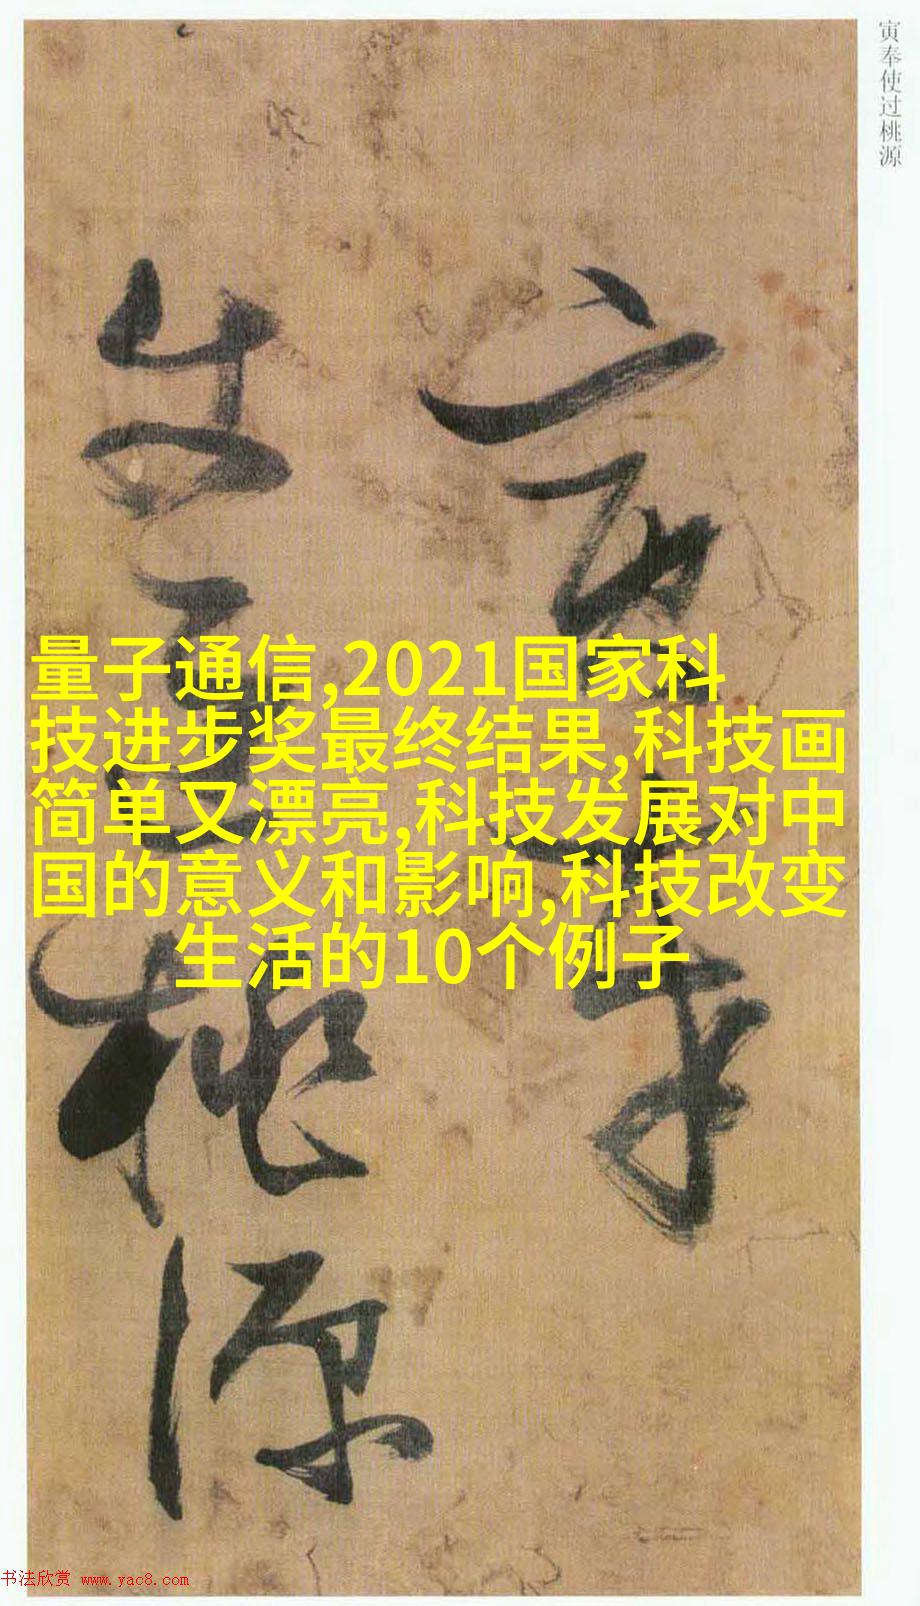 寅奉使过桃源
寅奉
使过桃源
量子通信,2021国家科
技进步奖最终结果,科技画
简单又漂亮,科技发展对中
国的意义和影响,科技改变
生活的10个例子
书法欣赏 www.yac8.com